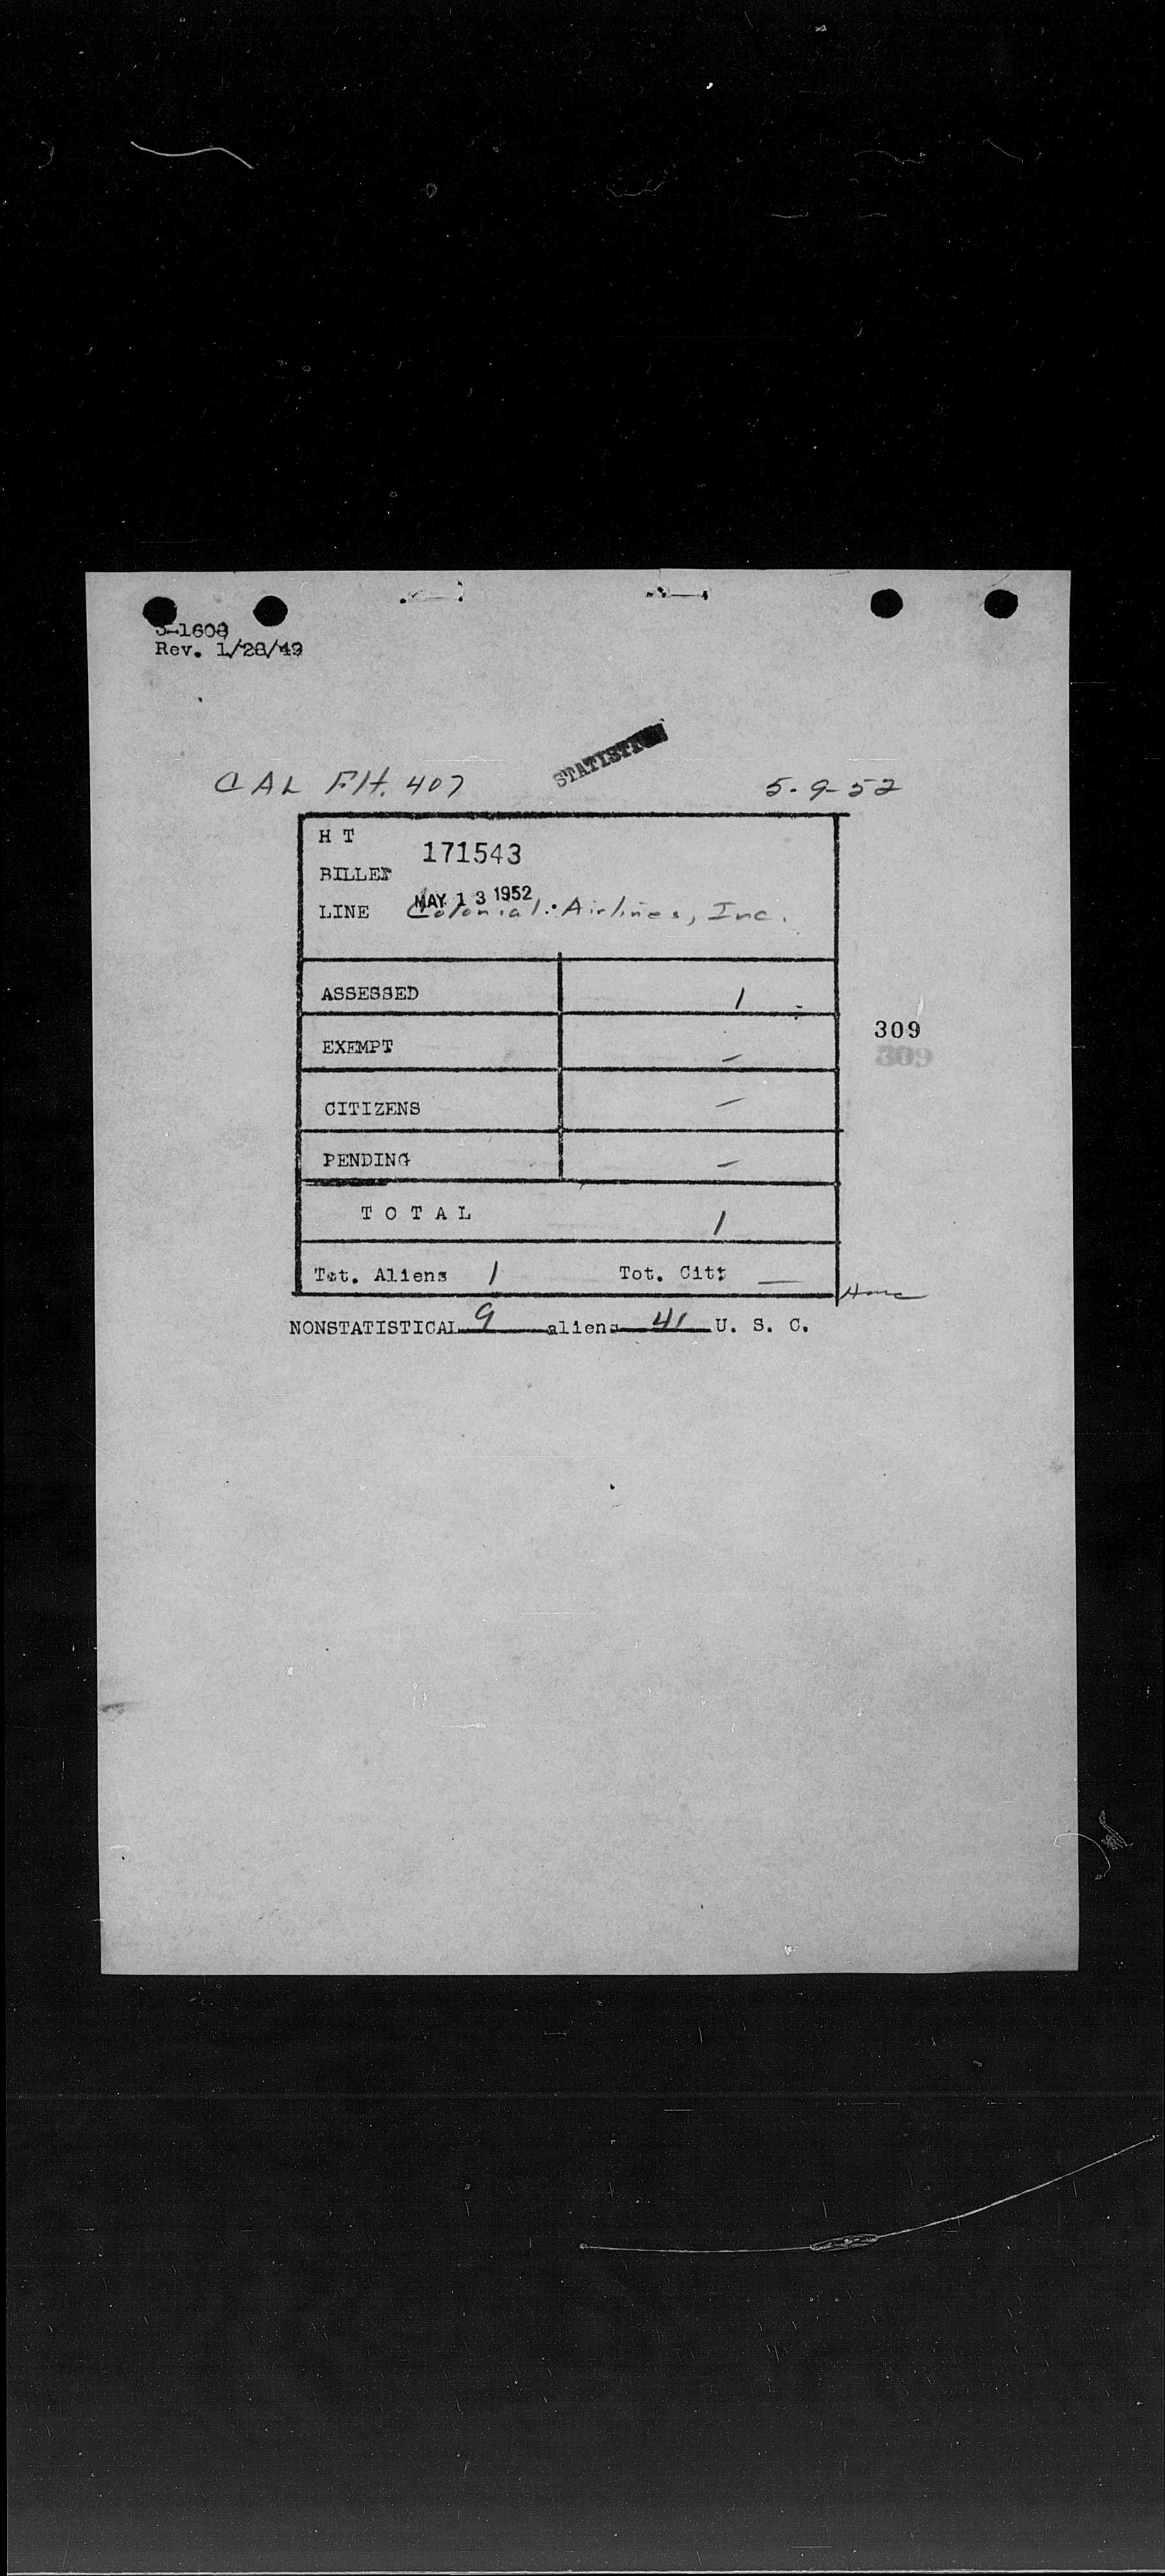 3-1608
Rev. 1/28/49
STATISTICS
CAL Flt. 407 5-9-52
H T
171543
BILLED
MAY 13 1952
LINE Colonial Airlines, Inc.
ASSESSED 1
309
EXEMPT –
309
CITIZENS –
PENDING –
T O T A L 1
Tot. Aliens 1 Tot. Citz —
NONSTATISTICAL 9 aliens 41 U. S. C.